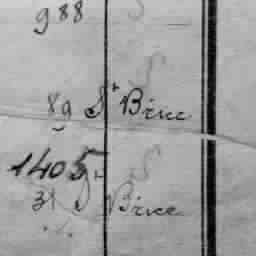 988
89 St Brice
1405
31 St Brice